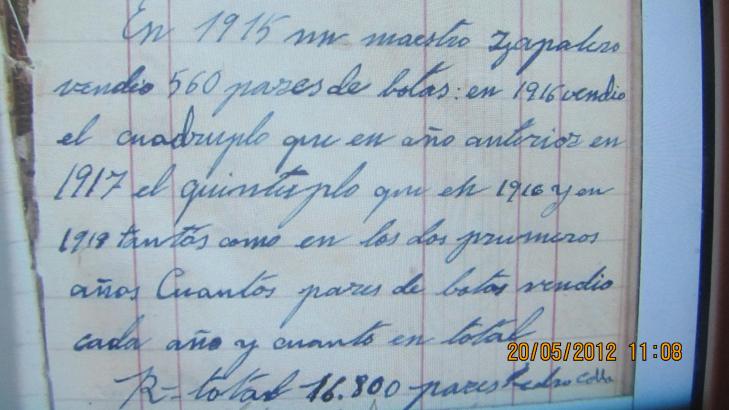 En 1915 un maestro zapatero
vendio 560 pares de botas: en 1916 vendio
el cuadruplo que en año anterior en
1917 el quintuplo que en 1916 y en
1918 tantas como en los dos primeros
años Cuantos pares de botas vendio
cada año y cuanto en total
R= total 16.800 pares Pedro
20/05/2012 11:08